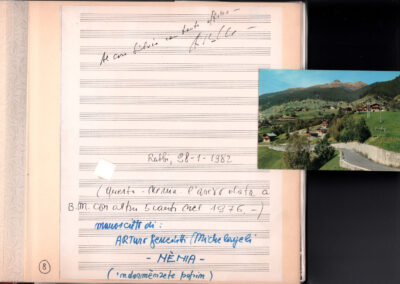 Al caro Silvio con tanto affetto
Rabbi, 28-1-1982
(Questa - Nenna l'avevo data a
B.M. con altri 5 canti nel 1976,-)
manoscritto di:
ARTURO Benedetti Michelangeli
- NÈNIA -
(indormènzete popin)
8